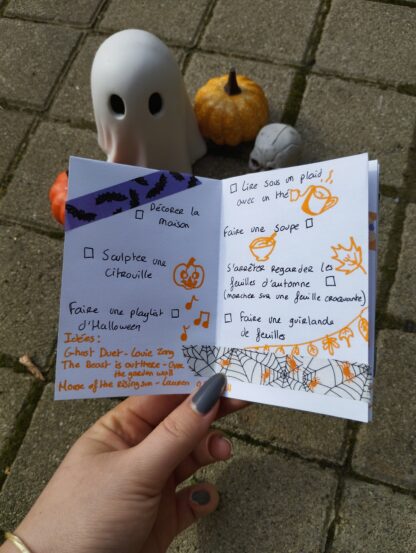 Décorer la
maison
Sculpter une
citrouille
Faire une playlist
d'Halloween
Idées:
Ghost Duet - Louie Zong
The Beast is out there - Over
the garden wall
House of the Rising sun - Lauren
Lire sous un plaid
avec un thé
Faire une soupe
S'arrêter regarder les
feuilles d'automne
(marcher sur une feuille craquante)
Faire une guirlande
de feuilles